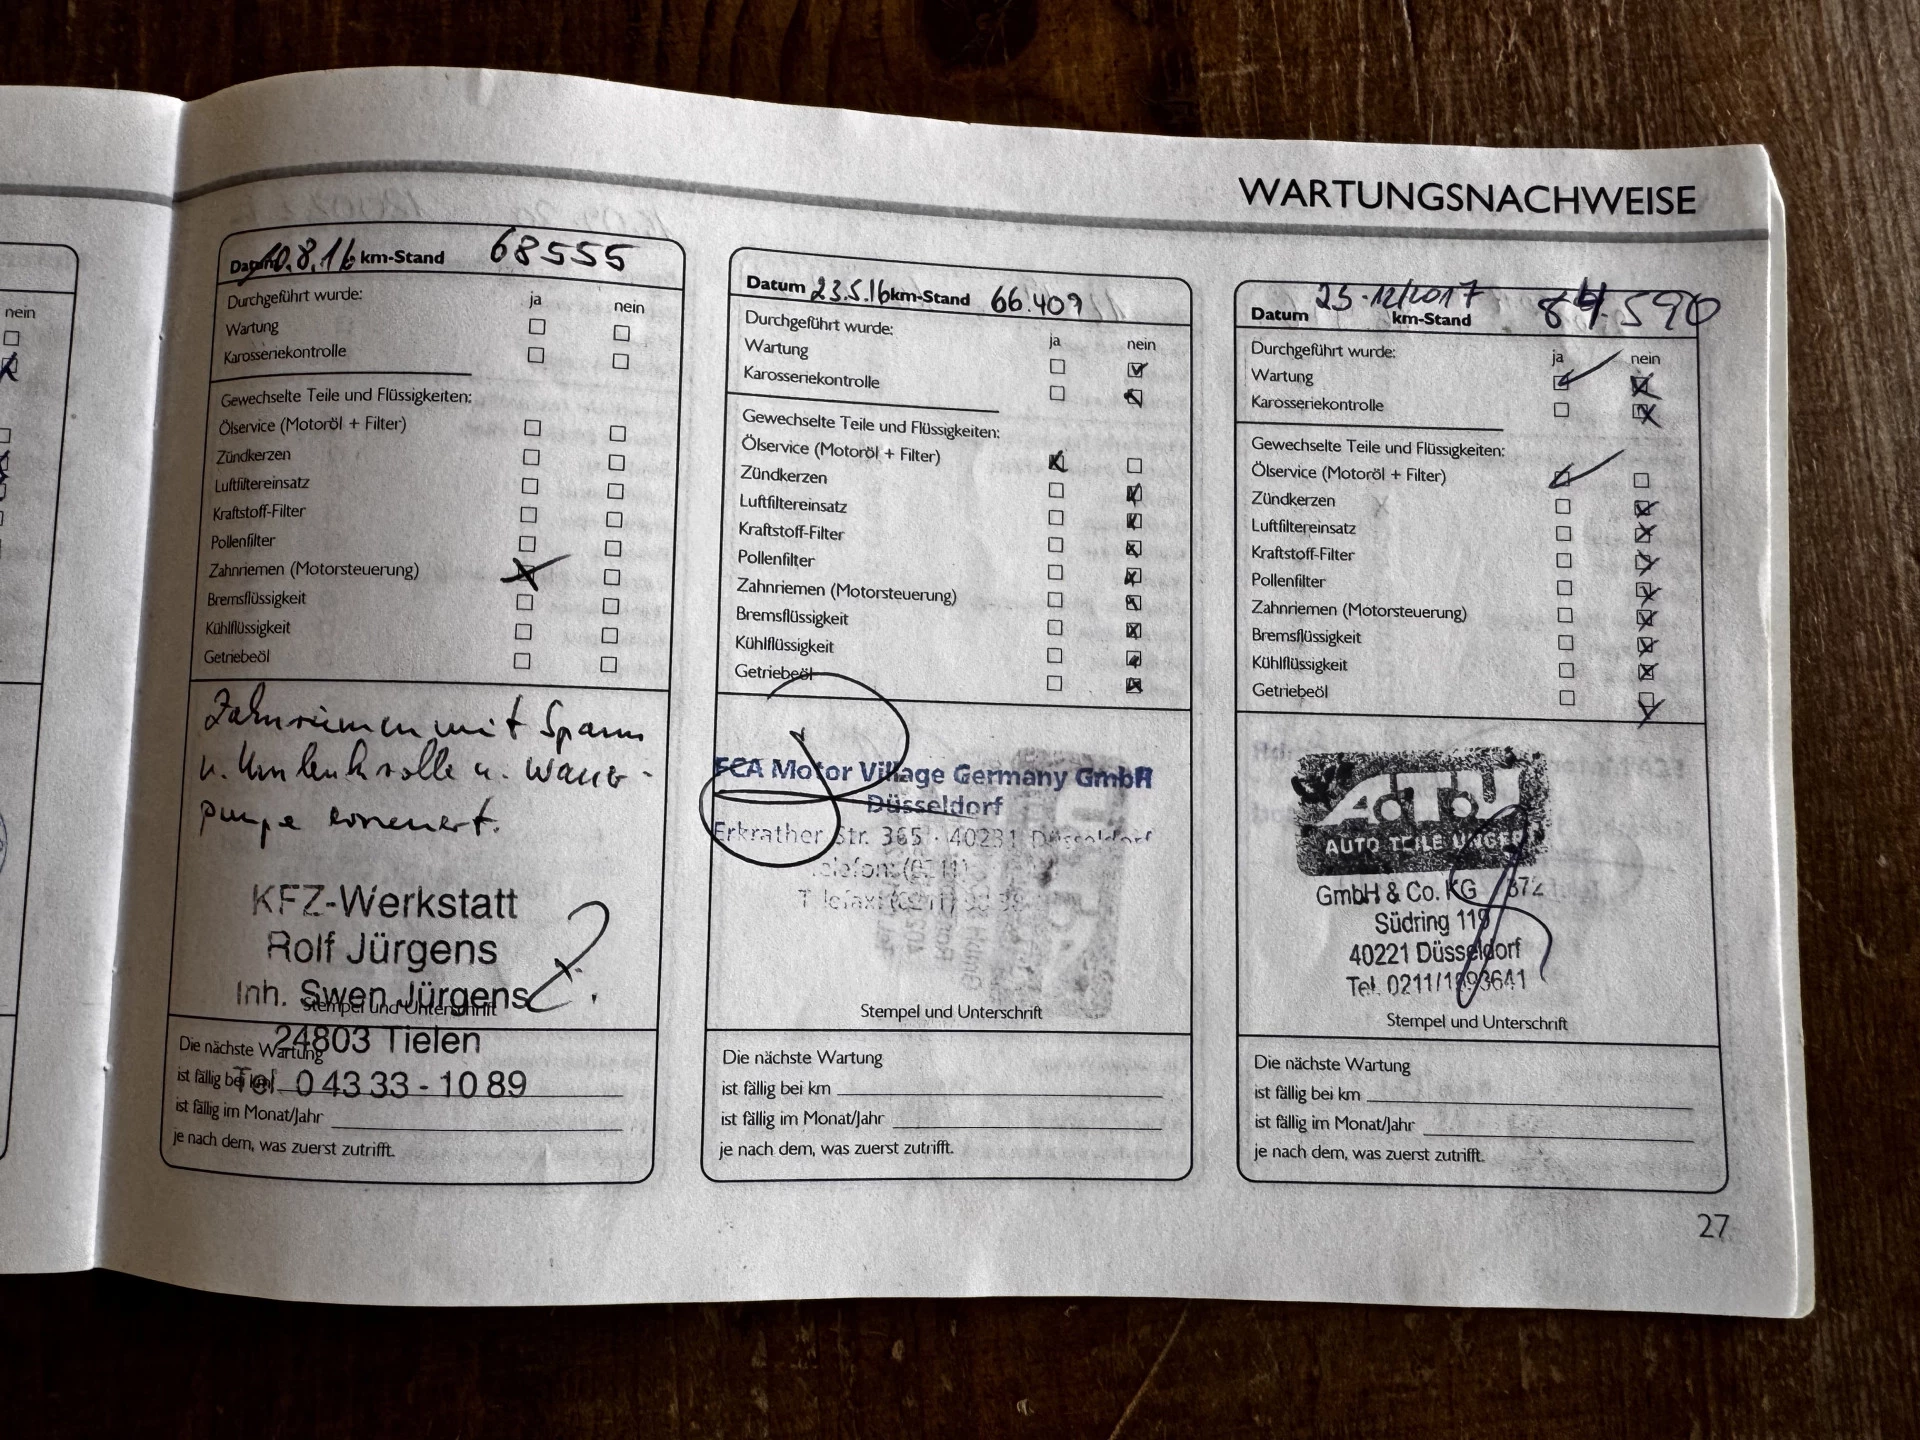 nein
WARTUNGSNACHWEISE
Datum 10.8.16 km-Stand 68555
Durchgeführt wurde: ja nein
Wartung
Karosseriekontrolle
Gewechselte Teile und Flüssigkeiten:
Ölservice (Motoröl + Filter)
Zündkerzen
Luftfiltereinsatz
Kraftstoff-Filter
Pollenfilter
Zahnriemen (Motorsteuerung)
Bremsflüssigkeit
Kühlflüssigkeit
Getriebeöl
Zahnriemen mit Spann
u. Umlenkrolle u. Wasser-
pumpe erneuert.
KFZ-Werkstatt
Rolf Jürgens
Inh. Swen Jürgens
Stempel und Unterschrift
24803 Tielen
Die nächste Wartung
Tel. 0 43 33 - 10 89
ist fällig bei km
ist fällig im Monat/Jahr
je nach dem, was zuerst zutrifft.
Datum 23.5.16 km-Stand 66.409
Durchgeführt wurde: ja nein
Wartung
Karosseriekontrolle
Gewechselte Teile und Flüssigkeiten:
Ölservice (Motoröl + Filter)
Zündkerzen
Luftfiltereinsatz
Kraftstoff-Filter
Pollenfilter
Zahnriemen (Motorsteuerung)
Bremsflüssigkeit
Kühlflüssigkeit
Getriebeöl
FCA Motor Village Germany GmbH
Düsseldorf
Erkrather Str. 365 · 40231 Düsseldorf
Telefon: (0211)
Telefax: (0211)
Stempel und Unterschrift
Die nächste Wartung
ist fällig bei km
ist fällig im Monat/Jahr
je nach dem, was zuerst zutrifft.
Datum 23.12/2017 km-Stand 84.590
Durchgeführt wurde: ja nein
Wartung
Karosseriekontrolle
Gewechselte Teile und Flüssigkeiten:
Ölservice (Motoröl + Filter)
Zündkerzen
Luftfiltereinsatz
Kraftstoff-Filter
Pollenfilter
Zahnriemen (Motorsteuerung)
Bremsflüssigkeit
Kühlflüssigkeit
Getriebeöl
A.T.U
AUTO TEILE UNGER
GmbH & Co. KG 372
Südring 119
40221 Düsseldorf
Tel. 0211/1593641
Stempel und Unterschrift
Die nächste Wartung
ist fällig bei km
ist fällig im Monat/Jahr
je nach dem, was zuerst zutrifft.
27